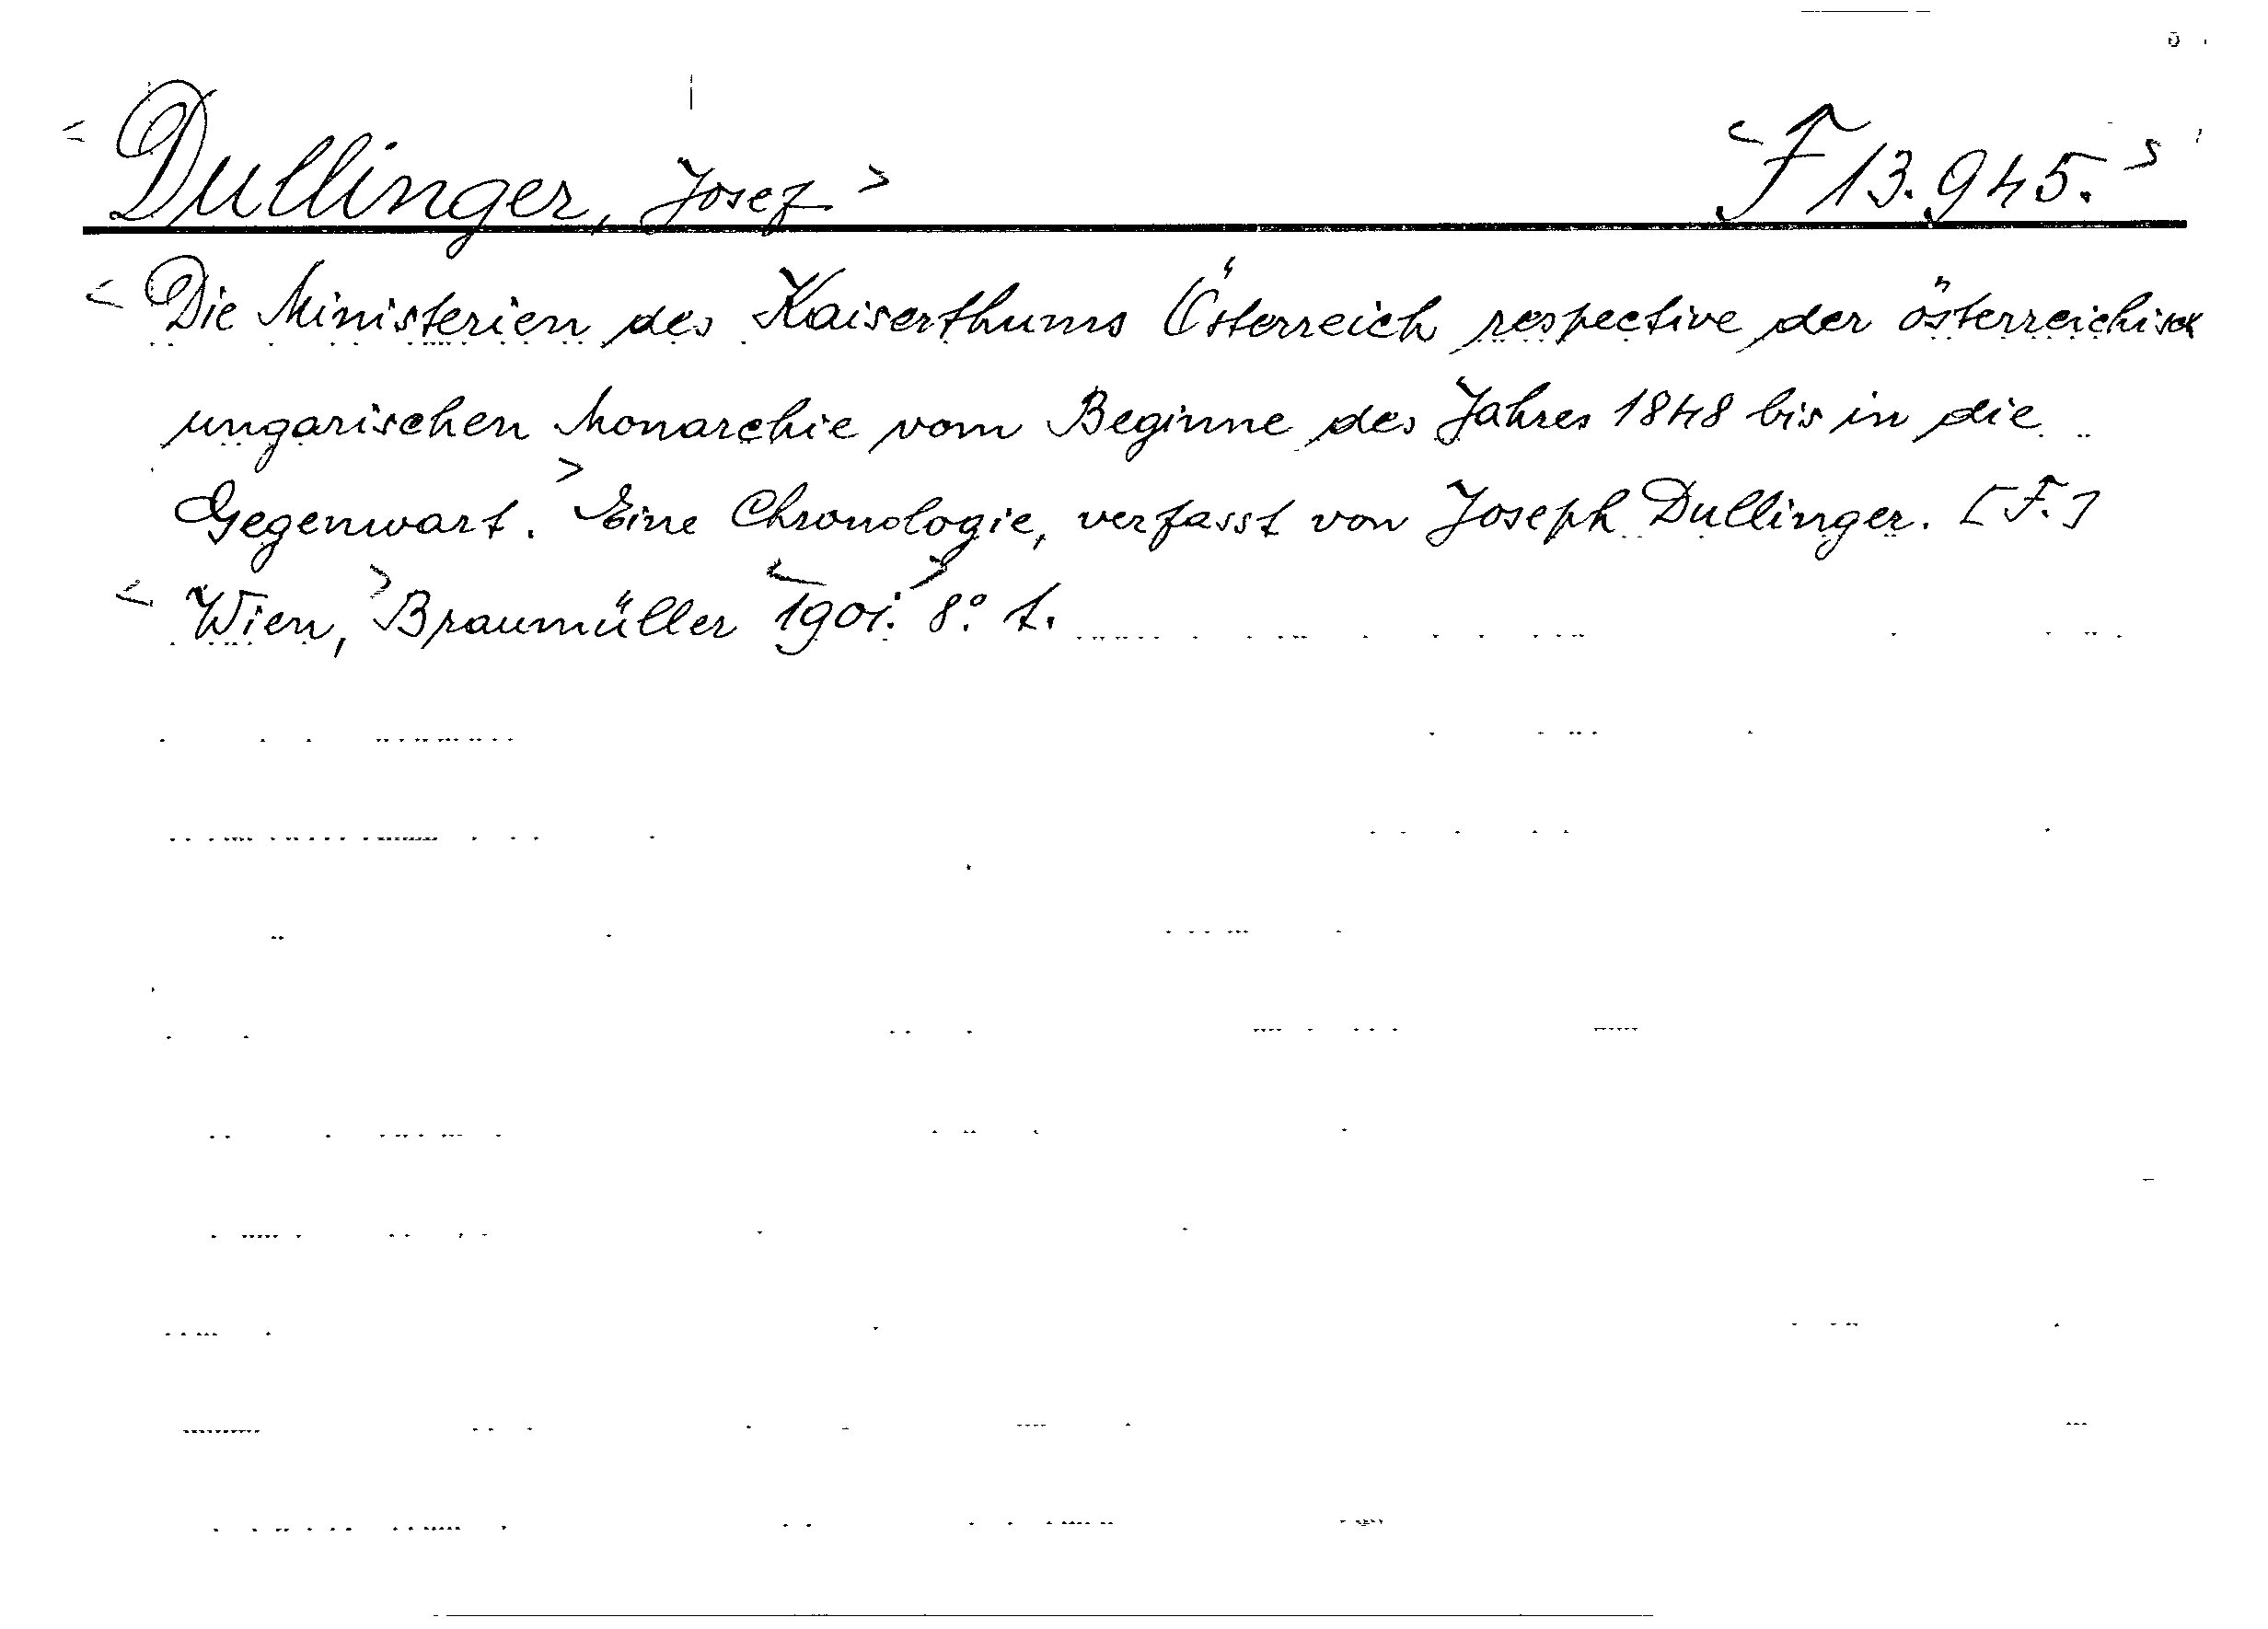 < Dullinger, Josef > < F 13.945. >
< Die Ministerien des Kaiserthums Österreich respective der österreichisch
ungarischen Monarchie vom Beginne des Jahres 1848 bis in die
Gegenwart. > Eine Chronologie, verfasst von Joseph Dullinger. [F.]
< Wien, > Braumüller < 1901. > 8.° t.